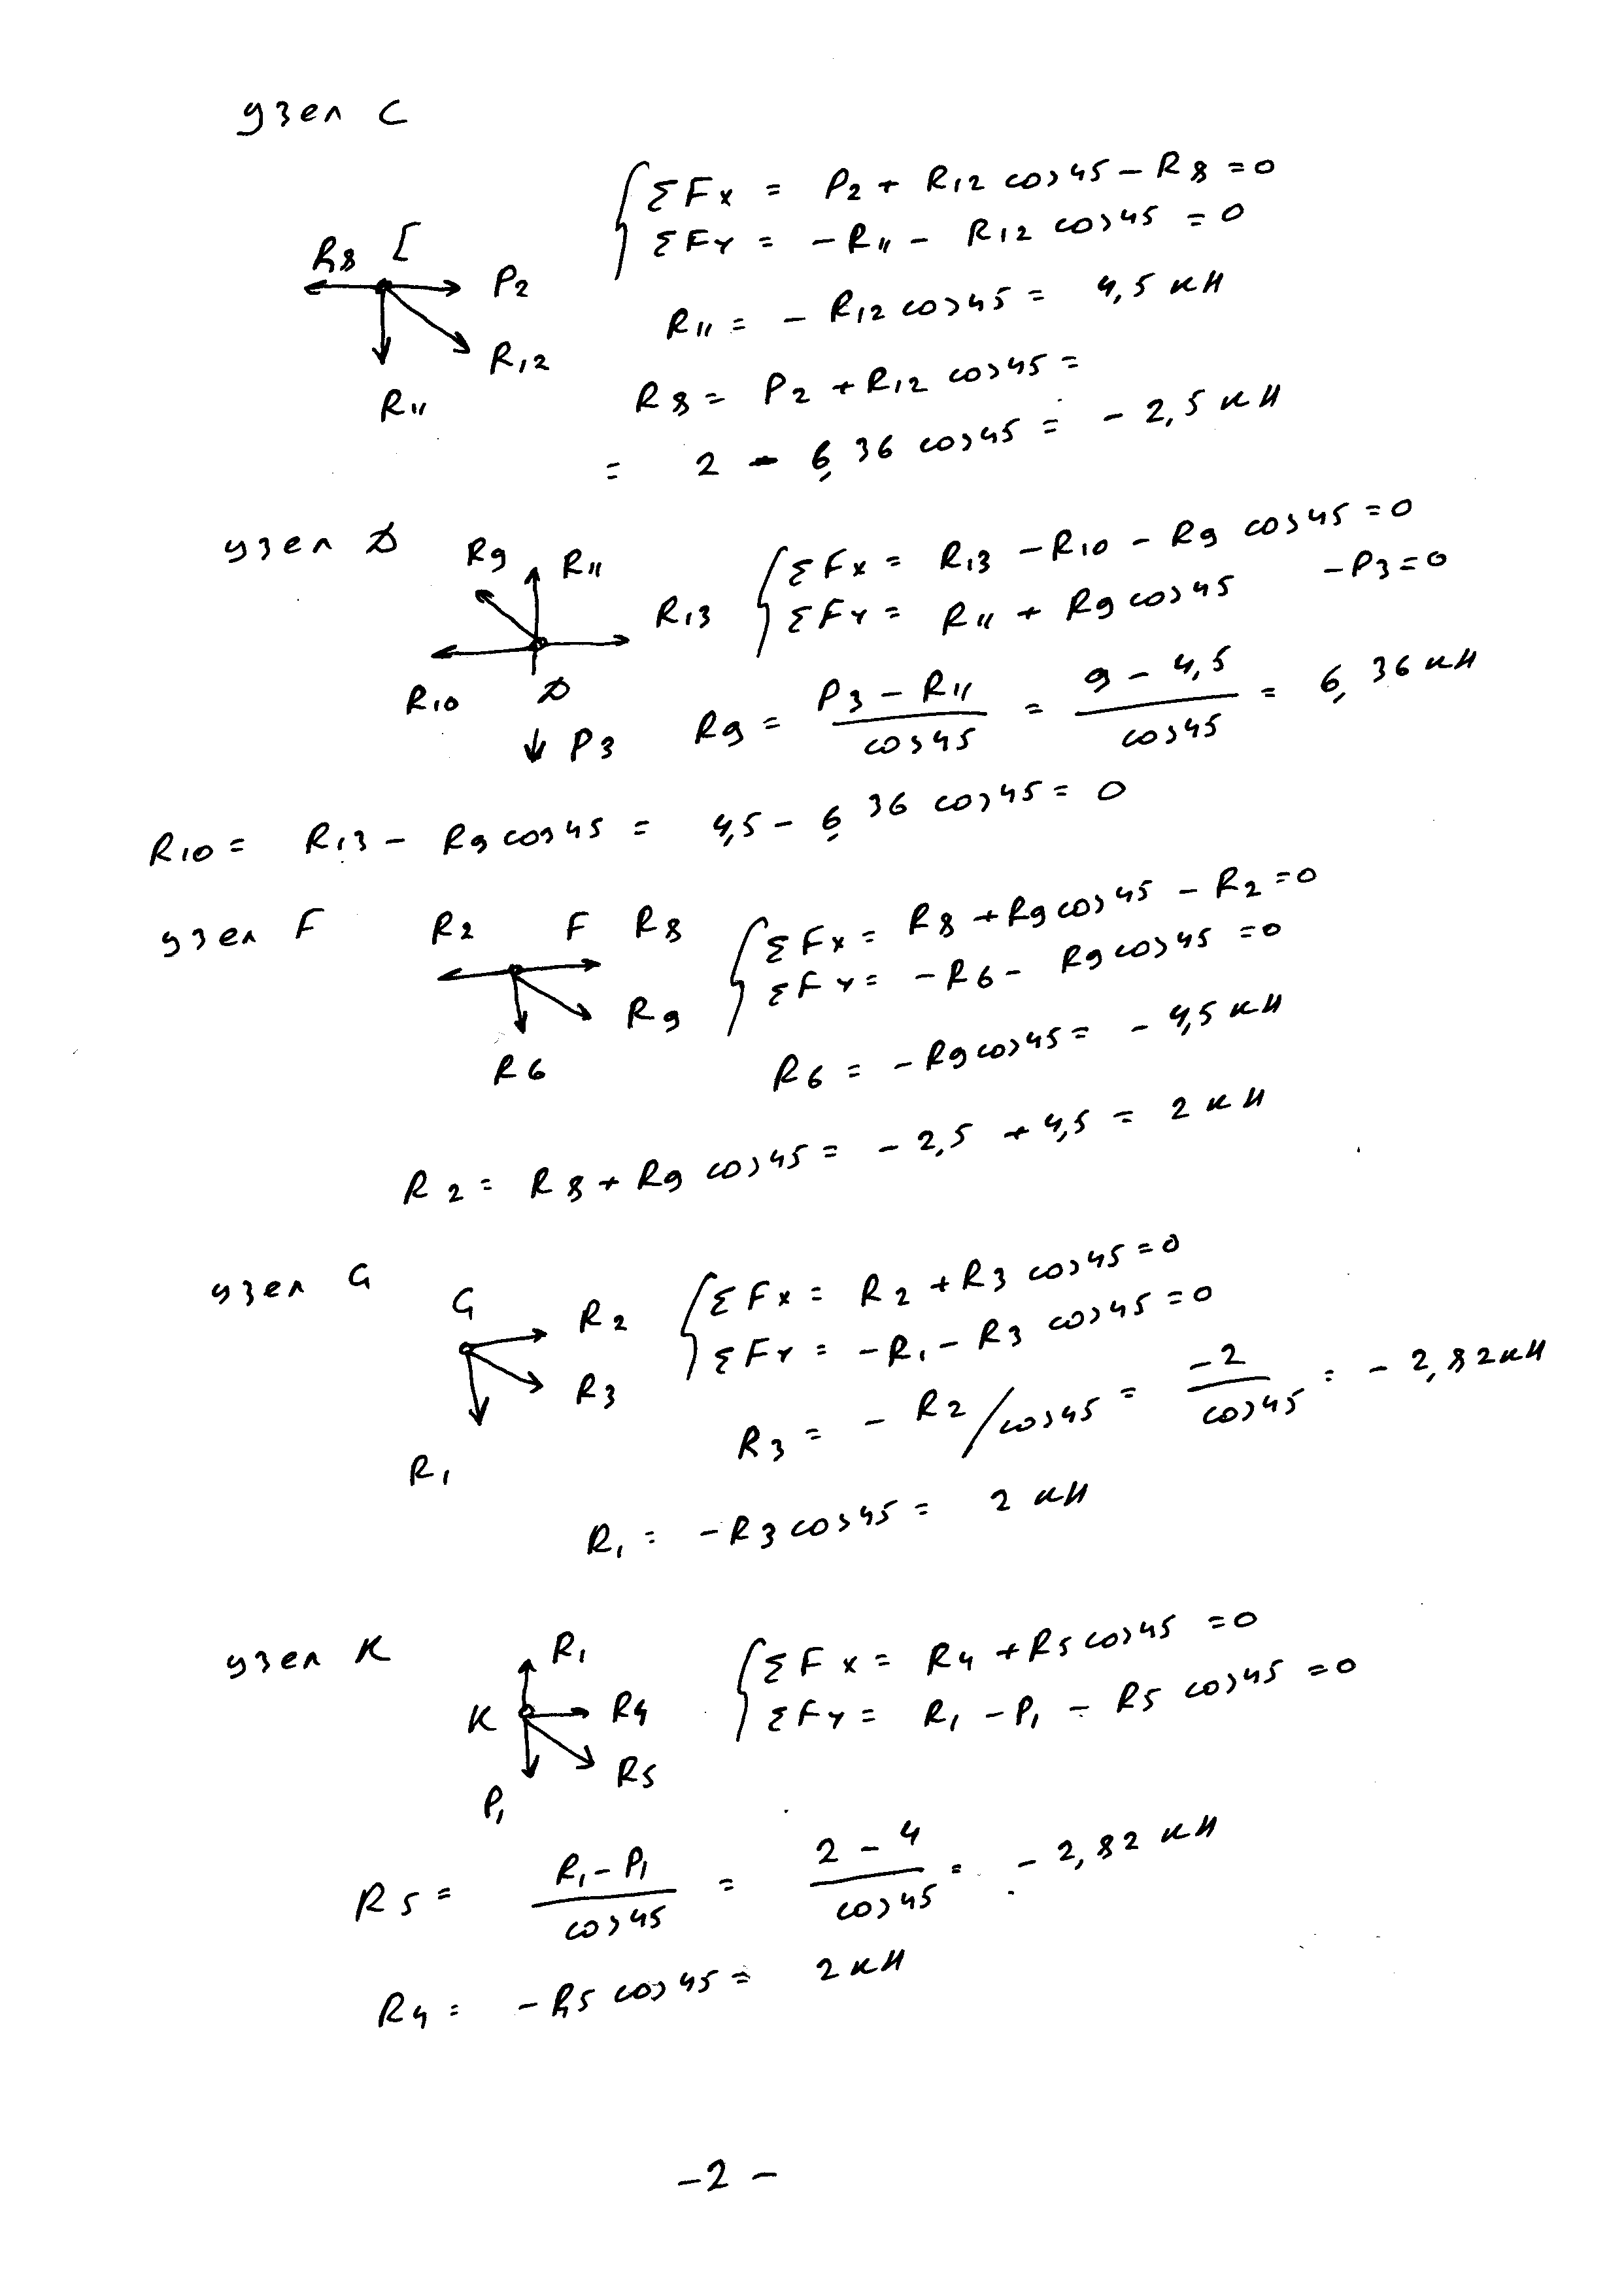 узел C
ΣFx = P2 + R12 cos45 − R8 = 0
ΣFy = −R11 − R12 cos45 = 0
R8 C P2
R12
R11
R11 = − R12 cos45 = 4,5 кН
R8 = P2 + R12 cos45 =
= 2 − 6,36 cos45 = − 2,5 кН
узел D
R9 R11
R13
R10 D
P3
ΣFx = R13 − R10 − R9 cos45 = 0
ΣFy = R11 + R9 cos45 − P3 = 0
R9 = (P3 − R11)/cos45 = (9 − 4,5)/cos45 = 6,36 кН
R10 = R13 − R9 cos45 = 4,5 − 6,36 cos45 = 0
узел F
R2 F R8
R9
R6
ΣFx = R8 + R9 cos45 − R2 = 0
ΣFy = −R6 − R9 cos45 = 0
R6 = − R9 cos45 = − 4,5 кН
R2 = R8 + R9 cos45 = − 2,5 + 4,5 = 2 кН
узел G
G R2
R3
R1
ΣFx = R2 + R3 cos45 = 0
ΣFy = −R1 − R3 cos45 = 0
R3 = − R2/cos45 = −2/cos45 = − 2,82 кН
R1 = −R3 cos45 = 2 кН
узел K
R1
K R4
R5
P1
ΣFx = R4 + R5 cos45 = 0
ΣFy = R1 − P1 − R5 cos45 = 0
R5 = (R1 − P1)/cos45 = (2 − 4)/cos45 = − 2,82 кН
R4 = − R5 cos45 = 2 кН
−2−